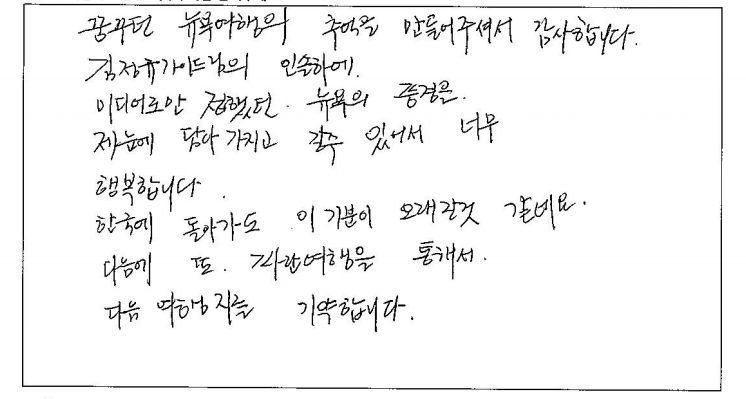 꿈꾸던 뉴욕여행의 추억을 만들어주셔서 감사합니다.
김정규가이드님의 인솔하에.
미디어로만 접했던. 뉴욕의 풍경을.
제눈에 담아 가지고 갈수 있어서 너무
행복합니다.
한국에 돌아가도 이 기분이 오래갈것 같네요.
다음에 또. 여행을 통해서.
다음 여행지를 기약합니다.